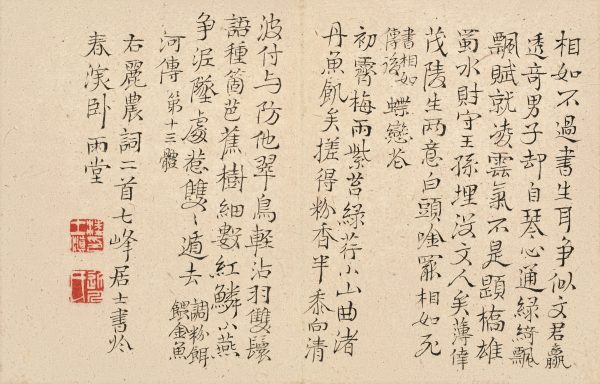 相如不過書生耳爭似文君贏
透奇男子却自琴心通綠綺飄
飄賦就凌雲氣不是題橋雄
蜀水財守王孫埋沒文人矣薄倖
茂陵生兩意白頭唫罷相如死
書相如
傳後 蝶戀花
初霽梅雨紫苔綠荇小山曲渚
丹魚飢矣搓得粉香半黍向清
波付与防他翠鳥輕沾羽雙鬟
語種箇芭蕉樹細數紅鱗小燕
爭泥墜處惹雙〻遁去
調粉餌
餵金魚
河傳 第十三體
右麗農詞二首七峰居士書於
春濱卧雨堂